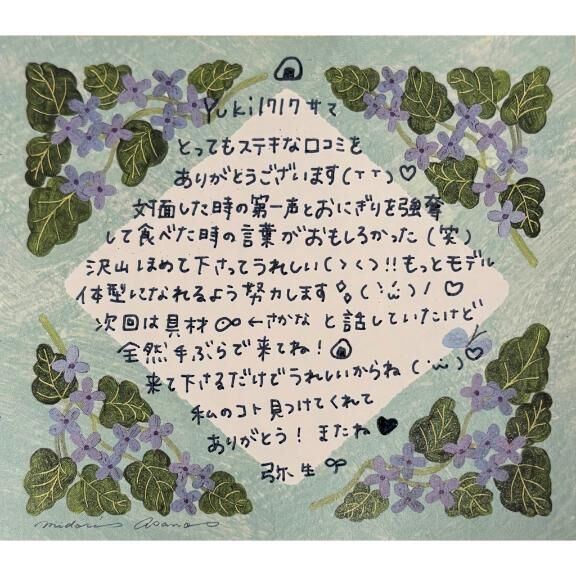 Yuki1717サマ
とってもステキな口コミを
ありがとうございます(TT)♡
対面した時の第一声とおにぎりを強奪
して食べた時の言葉がおもしろかった(笑)
沢山ほめて下さってうれしい(><)!!もっとモデル
体型になれるよう努力します(˙ω˙)/♡
次回は具材∞←さかなと話していたけど
全然手ぶらで来てね!🍙
来て下さるだけでうれしいからね(˙ω˙)♡
私のコト見つけてくれて
ありがとう!またね♥
弥生
midori asano